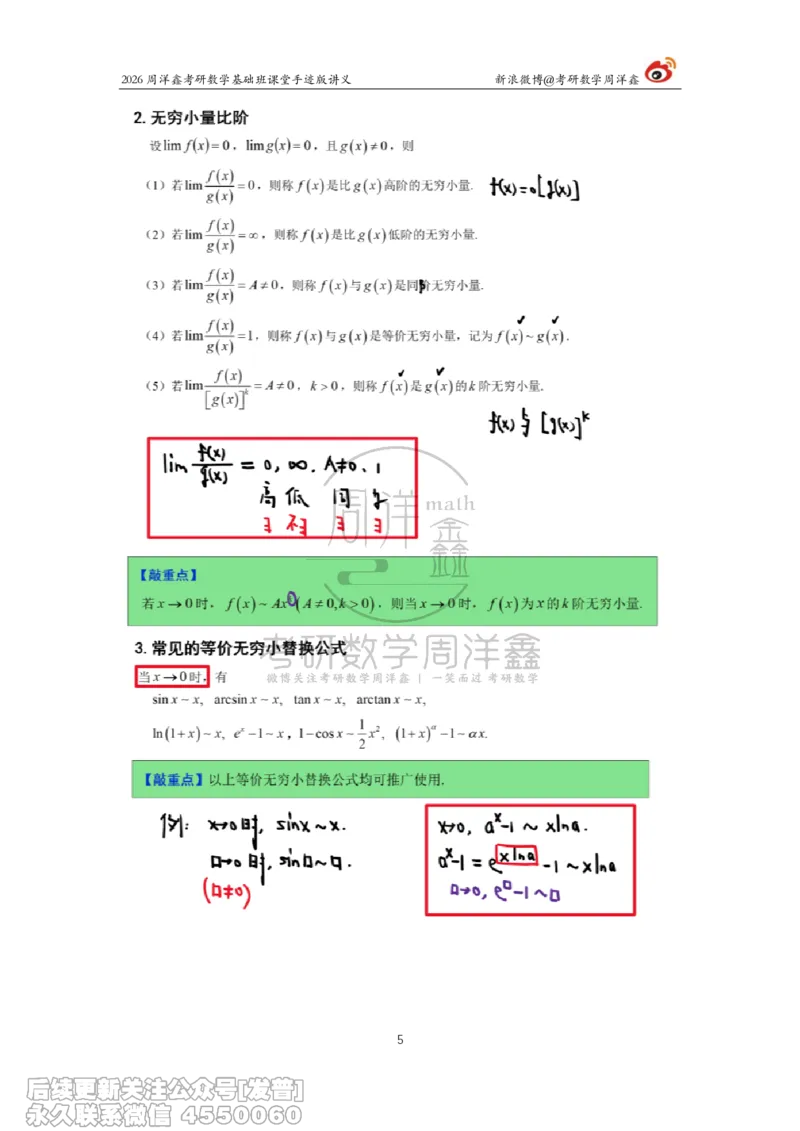 2026周洋鑫考研数学基础班课堂手迹版讲义 新浪微博@考研数学周洋鑫
2. 无穷小量比阶
设lim f(x)=0，lim g(x)=0，且g(x)≠0，则
（1）若lim f(x)/g(x)=0，则称f(x)是比g(x)高阶的无穷小量. f(x)=o[g(x)]
（2）若lim f(x)/g(x)=∞，则称f(x)是比g(x)低阶的无穷小量.
（3）若lim f(x)/g(x)=A≠0，则称f(x)与g(x)是同阶无穷小量.
（4）若lim f(x)/g(x)=1，则称f(x)与g(x)是等价无穷小量，记为f(x)~g(x).
（5）若lim f(x)/[g(x)]^k=A≠0，k>0，则称f(x)是g(x)的k阶无穷小量.
f(x)与[g(x)]^k
lim f(x)/g(x) = 0, ∞. A≠0、1
高 低 同
∃ 不∃ ∃ ∃
周洋math
鑫
【敲重点】
若x→0时，f(x)~Ax (A≠0,k>0)，则当x→0时，f(x)为x的k阶无穷小量.
3. 常见的等价无穷小替换公式
考研数学周洋鑫
当x→0时，有
微博关注考研数学周洋鑫 | 一笑而过 考研数学
sin x~x, arcsin x~x, tan x~x, arctan x~x,
ln(1+x)~x, e^x−1~x，1−cos x~1/2 x², (1+x)^α−1~αx.
【敲重点】以上等价无穷小替换公式均可推广使用.
例: x→0时, sinx~x.
□→0时, sin□~□.
(□≠0)
x→0, a^x-1 ~ xlna.
a^x-1 = e^xlna -1 ~ xlna
□→0, e^□-1~□
5
后续更新关注公众号[发普]
永久联系微信 4550060